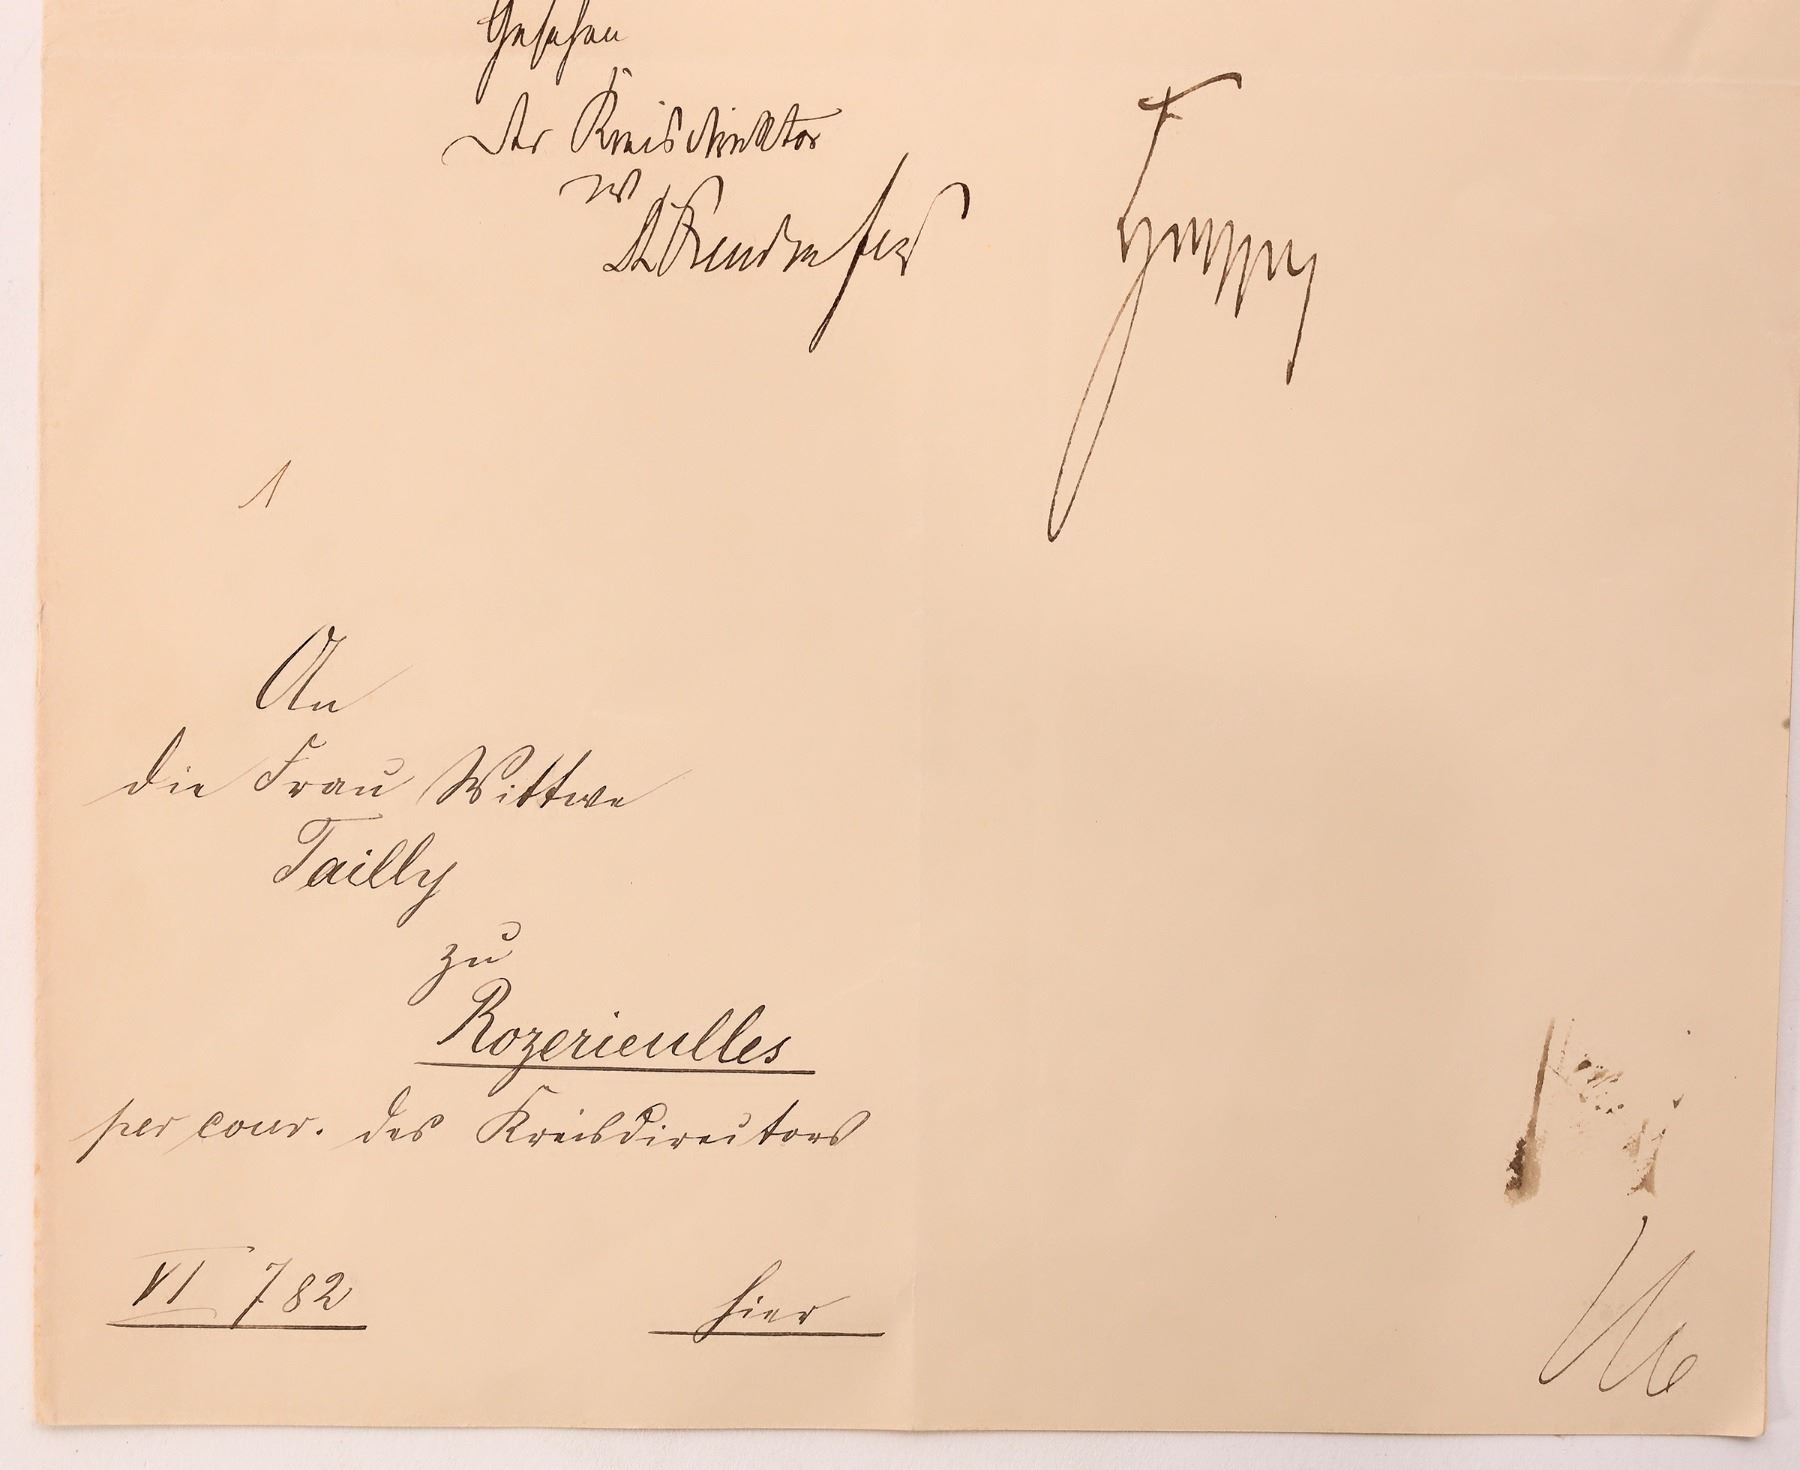 Gesehen
Der Kreisdirektor
1
An
die Frau Wittwe
Tailly
zu
Rozerieulles
per cour. des Kreisdirectors
VI 782
hier